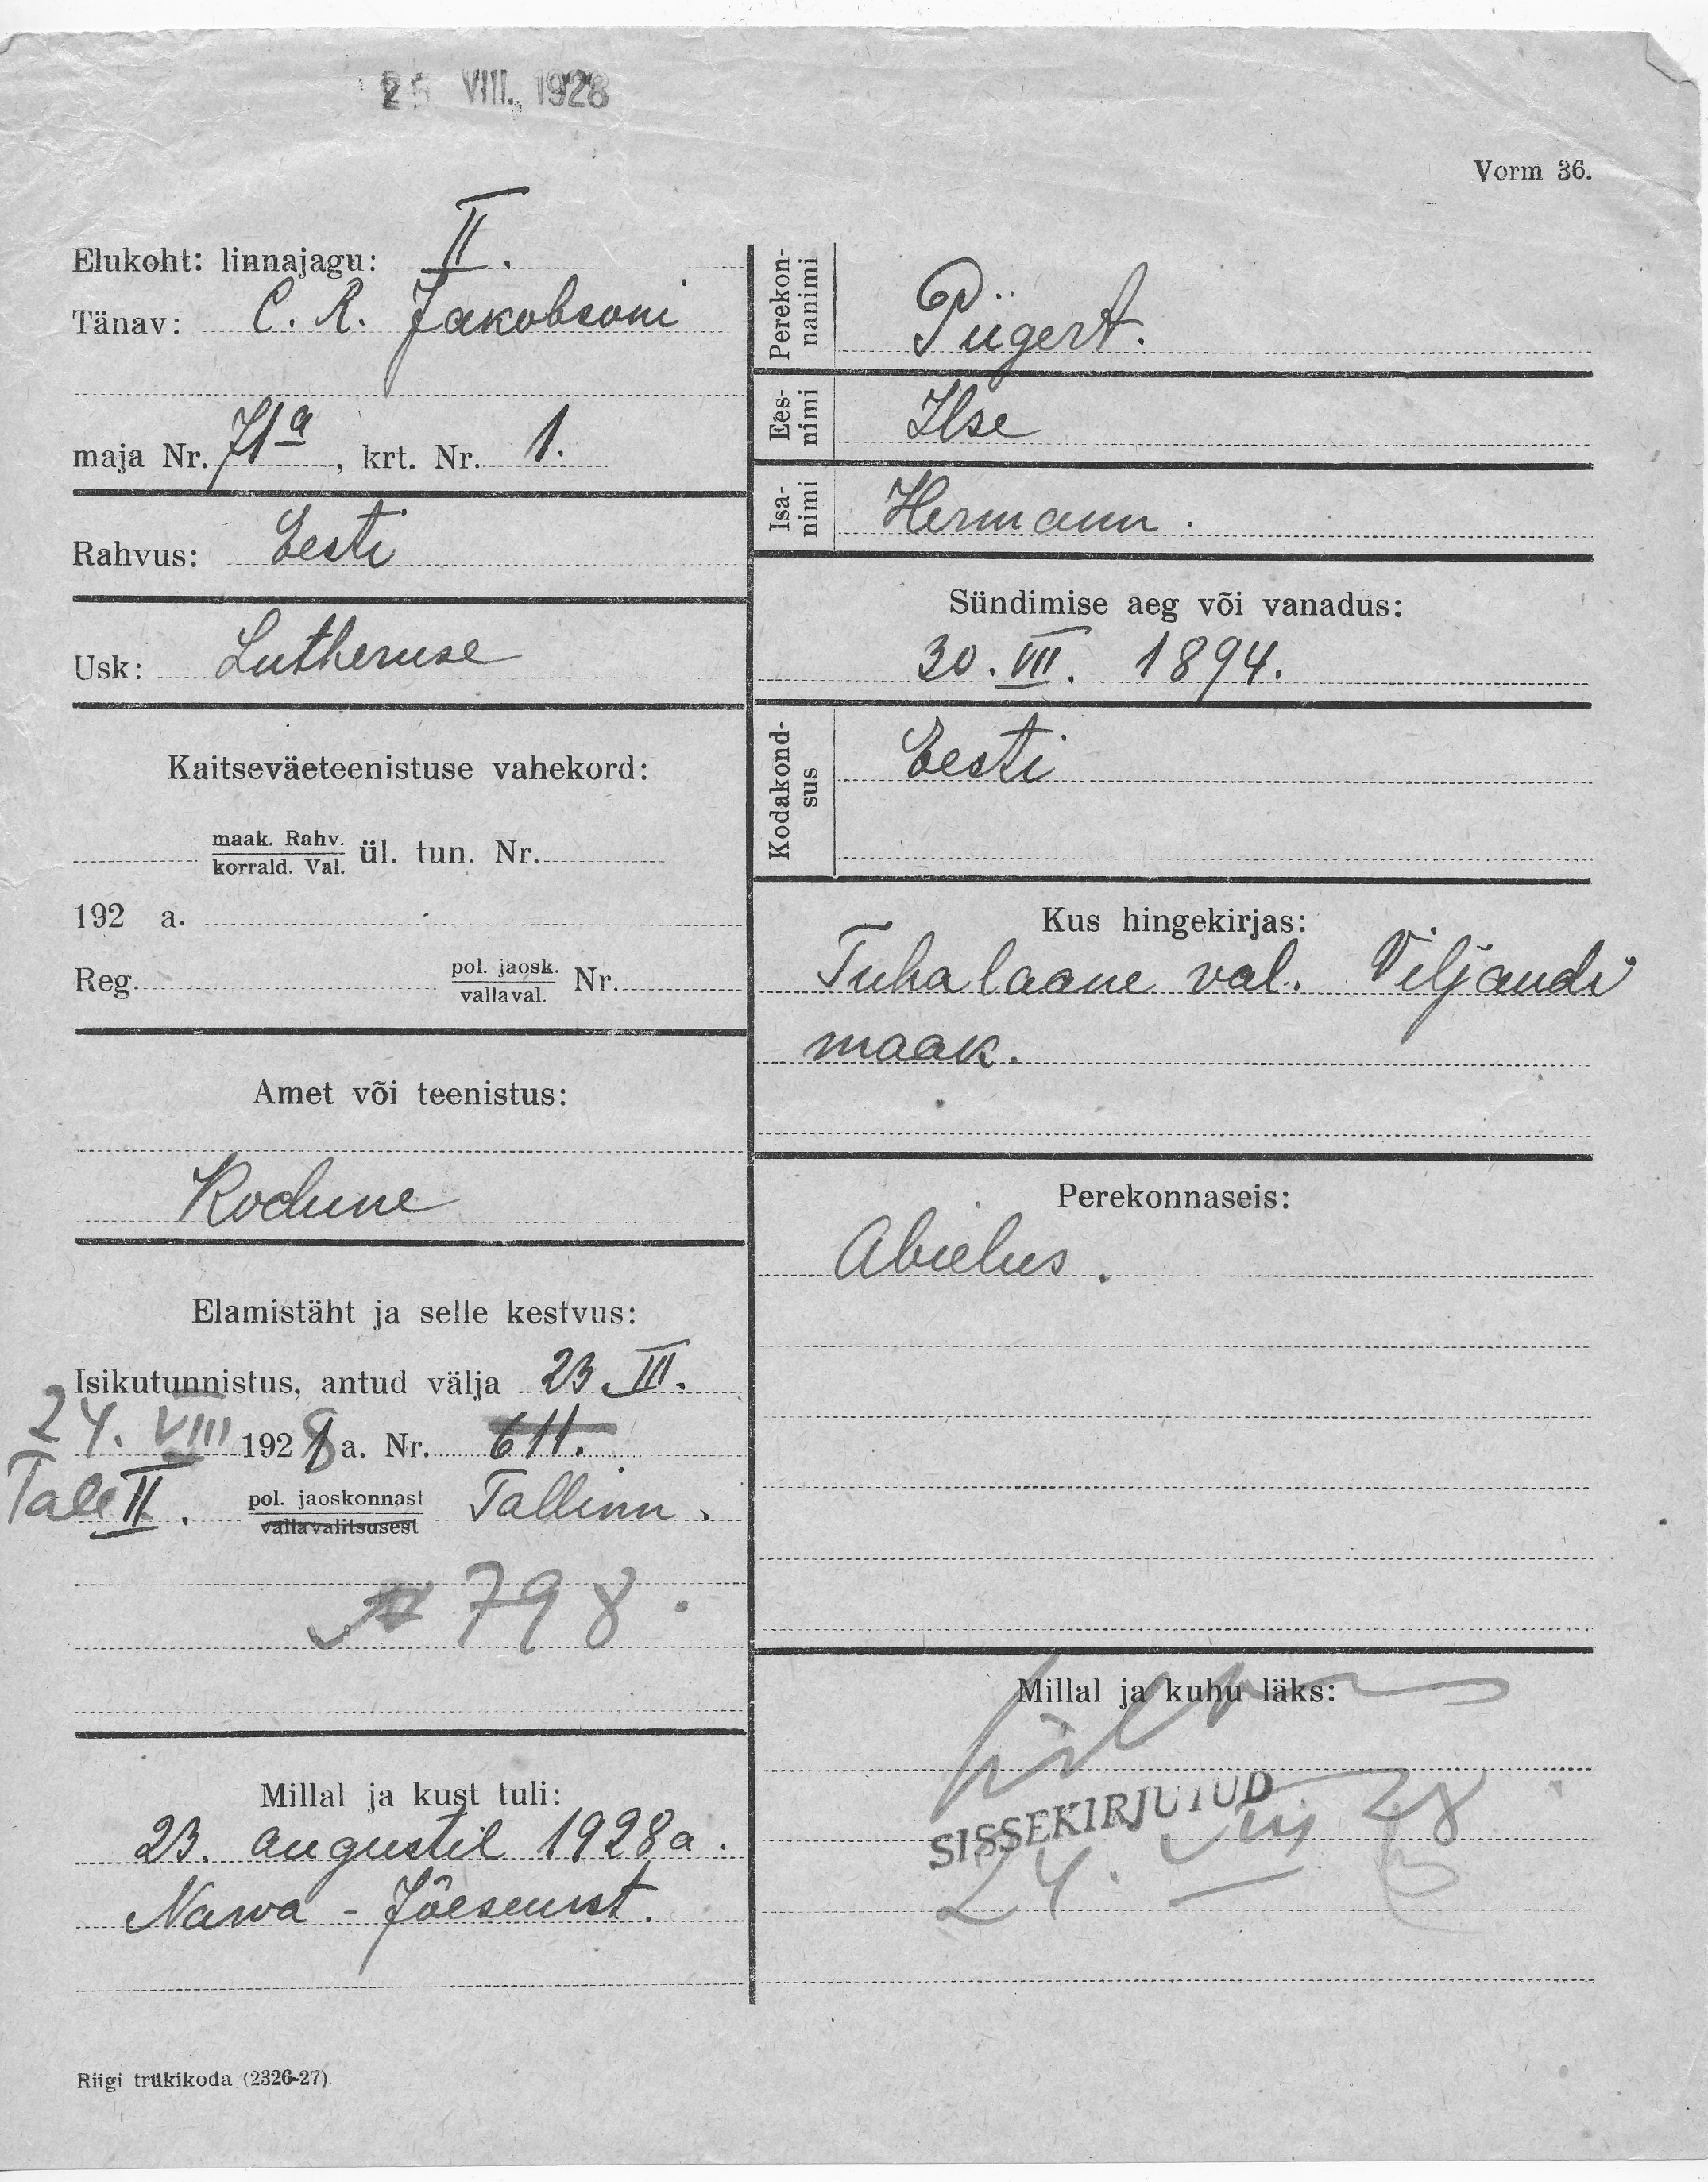 25 VIII. 1928
Vorm 36.
Elukoht: linnajagu: II.
Tänav: C. R. Jakobsoni
maja Nr. 71a, krt. Nr. 1.
Rahvus: Eesti
Usk: Lutheruse
Kaitseväeteenistuse vahekord:
maak. Rahv.
korrald. Val. ül. tun. Nr.
192 a.
Reg. pol. jaosk.
vallaval. Nr.
Amet või teenistus:
Kodune
Elamistäht ja selle kestvus:
Isikutunnistus, antud välja 23. III.
24. VIII 1928 a. Nr. 611.
Tall II. pol. jaoskonnast Tallinn.
vallavalitsusest
N 798.
Millal ja kust tuli:
23. augustil 1928 a.
Narva - Jõesuust.
Riigi trükikoda (2326-27).
Perekon-
nanimi
Pügert.
Ees-
nimi
Ilse
Isa-
nimi
Hermann.
Sündimise aeg või vanadus:
30. VII. 1894.
Kodakond-
sus
Eesti
Kus hingekirjas:
Tuhalaane val. Viljandi
maak.
Perekonnaseis:
Abielus.
Millal ja kuhu läks:
SISSEKIRJUTUD
24. VIII 28